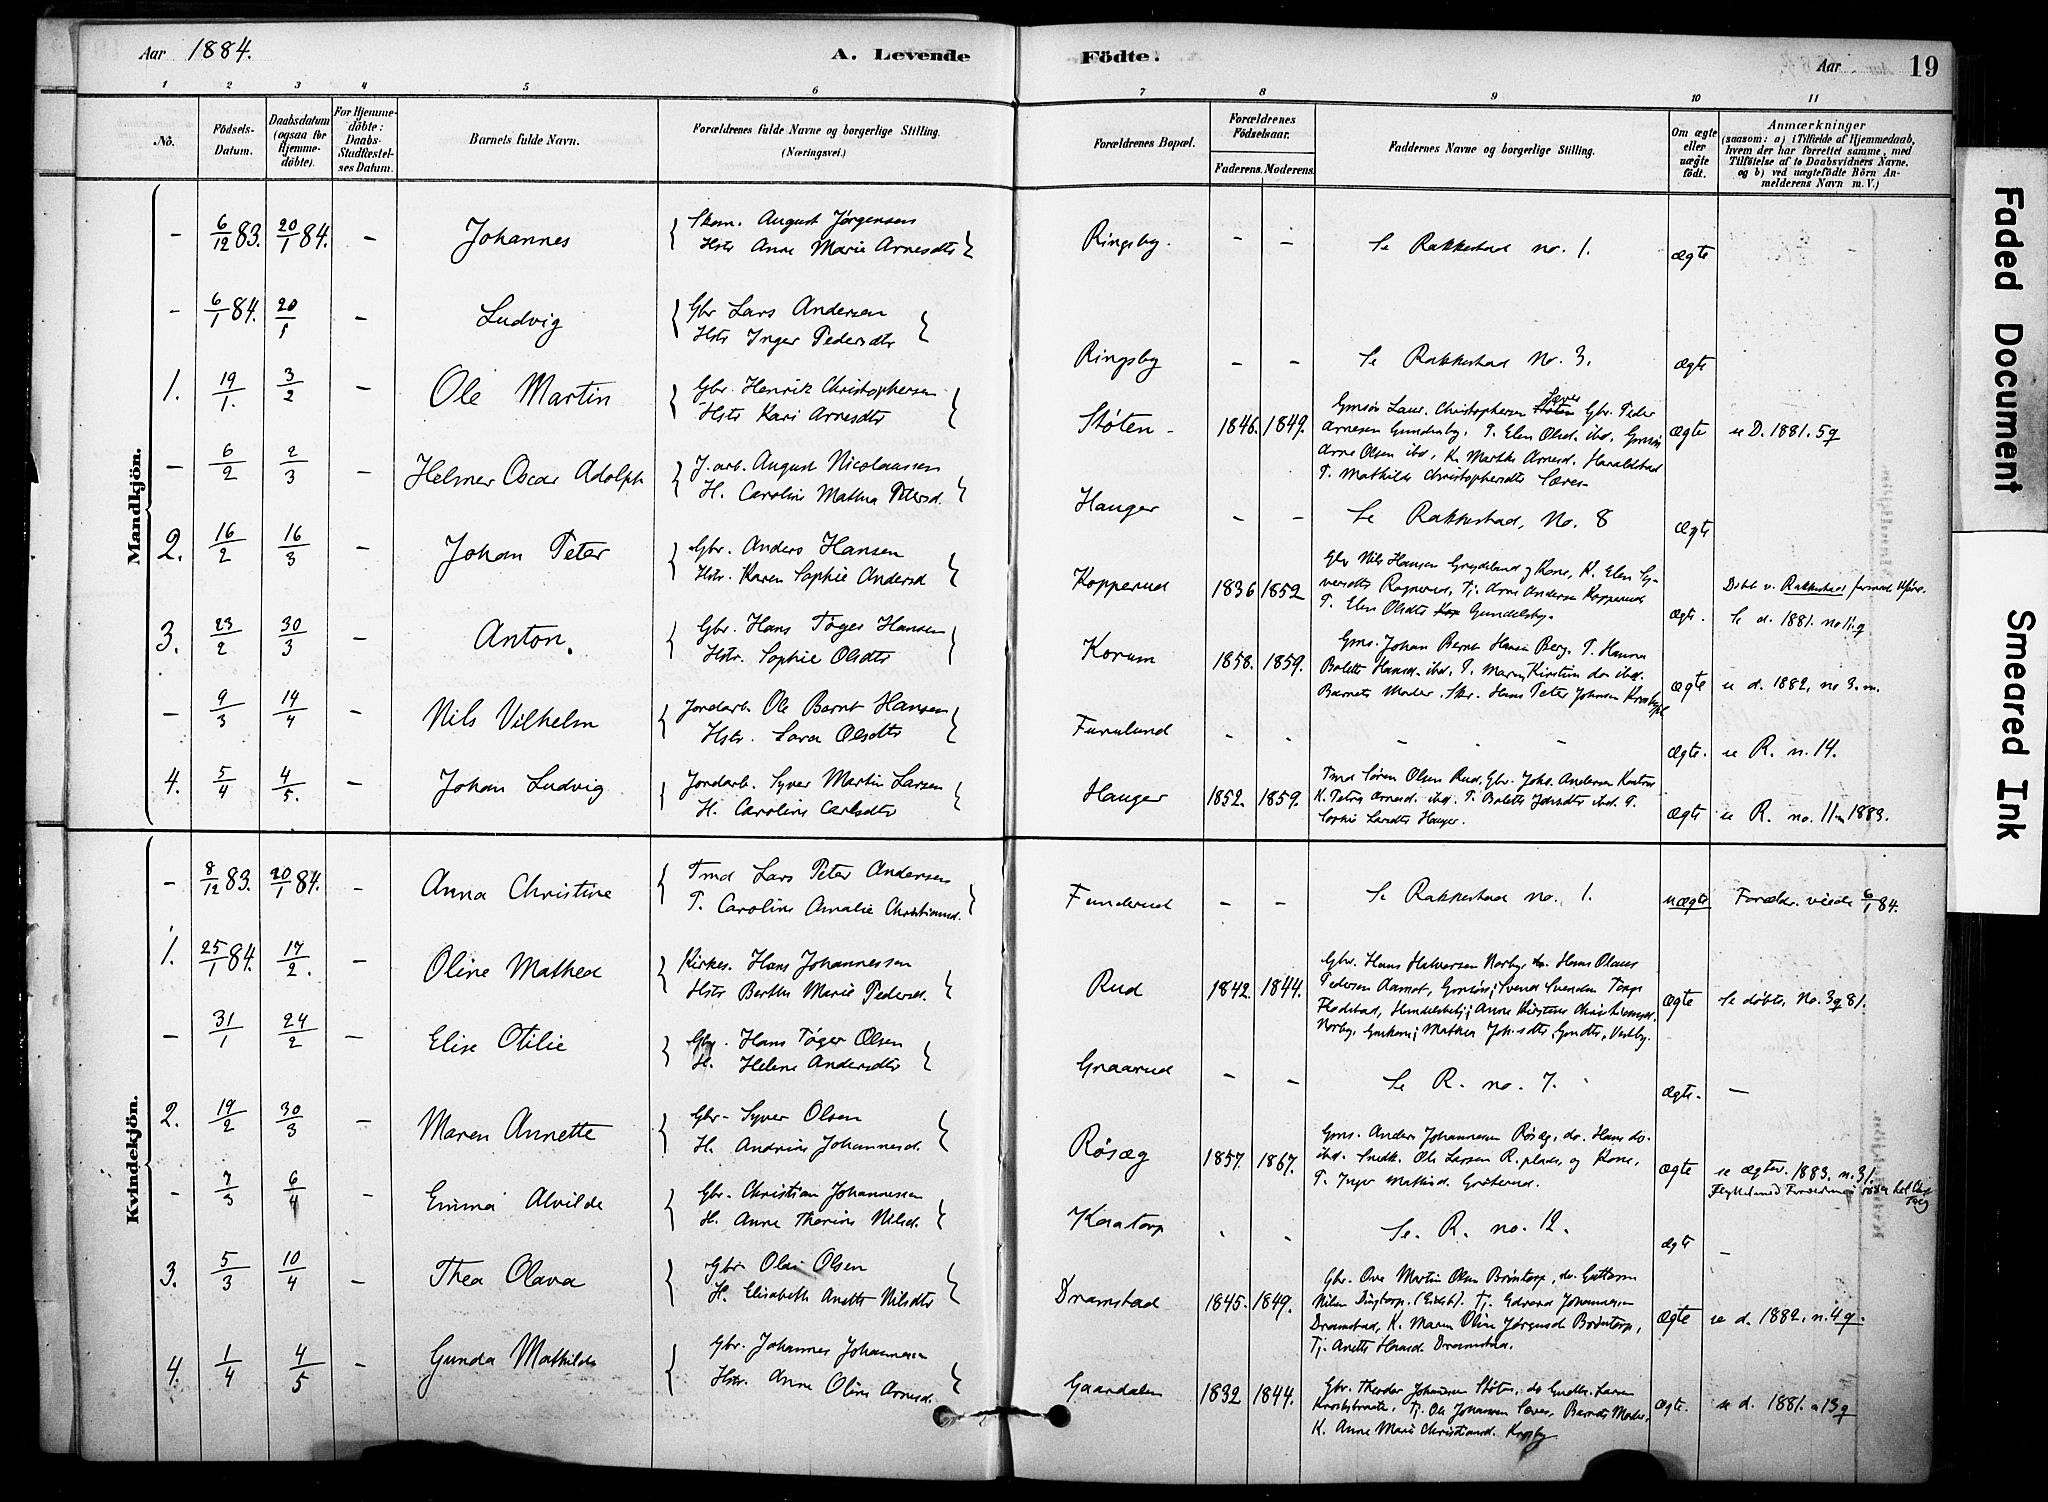 Aar 1884.
A. Levende
Födte.
Aar
19
1 2 3 4 5 6 7 8 9 10 11
Nö.
Födsels-Datum.
Daabsdatum (ogsaa for Hjemme-döbte).
For Hjemme-döbte: Daabs-Stadfæstel-ses Datum.
Barnets fulde Navn.
Forældrenes fulde Navne og borgerlige Stilling. (Næringsvei.)
Forældrenes Bopæl.
Forældrenes Födselsaar.
Faderens. Moderens.
Faddernes Navne og borgerlige Stilling.
Om ægte eller uægte födt.
Anmærkninger
(saasom: a) i Tilfælde af Hjemmedaab, hvem der har forrettet samme, med Tilföielse af to Daabsvidners Navne, og b) ved uægtefödte Börn An-melderens Navn m. V.)
Mandkjön.
- 6/12 83. 20/1 84. - Johannes
August Jørgensen
Hstr Anne Marie Arnesdtr
Ringsby. - - Se Rakkestad no. 1. ægte
- 6/1 84. 20/1 - Ludvig
Gbr Lars Andersen
Hstr Inger Pedersdtr
Ringsby - - Se Rakkestad No. 3. ægte
1. 19/1. 3/2 - Ole Martin
Gbr. Henrik Christophersen
Hstr Kari Arnesdtr
Støten - 1846. 1849.
Gmsøn Laur. Christophersen Sæves Støten Gbr. Peder
Arnesen Gundersby. P. Elen Olsd. ibd. Gmsøn
Arne Olsen ibd, K. Marthe Arnesd. Haraldstad
P. Mathilde Christophersdtr Sæves
ægte se D. 1881. 5 q
- 6/2 2/3 - Helmer Oscar Adolph
J.arb. August Nicolausen
H. Caroline Mathea Petersd.
Hauger - - Se Rakkestad, No. 8 ægte
2. 16/2 16/3 - Johan Peter
Gbr. Anders Hansen
Hstr. Karen Sophie Andersd
Kopperud 1836 1852
Gbr Nils Hansen Grydeland og Kone, K. Elen Sy-
versdtr Ragnerud, Tj. Arne Andersen Kopperud
P. Elen Olsdtr Kop Gundelsby.
ægte. Døbt v. Rakkestad
Se d. 1881. no 11. q
3. 23/2 30/3 - Anton.
Gbr. Hans Tøger Hansen
Hstr. Sophie Olsdtr
Korum 1858. 1859.
Gms. Johan Bernt Hansen Berg. P. Hanna
Bolette Hansd. ibd. P. Maren Kirstine do ibd.
Barnets Moder. Skr. Hans Peter Johnsen
ægte se d. 1882, no 3. m.
- 9/3 14/4 - Nils Vilhelm
Jordarb. Ole Bernt Hansen
Hstr. Lara Olsdtr
Furulund - - - - - ægte. se R. n. 14.
4. 5/4 4/5. - Johan Ludvig
Jordarb. Syver Martin Larsen
H. Caroline Carlsdtr
Hauger 1852. 1859.
Tmd Søren Olsen Rud, Gbr. Johs. Andersen
K. Petra Arnesd. ibd. P. Bolette ibd. P.
Sophie Larsdtr Hauger.
ægte se R. no. 11 m 1883.
Kvindekjön.
- 8/12 83. 20/1 84. - Anna Christine
Tmd Lars Peter Andersen
P. Caroline Amalie Christiansd.
Funderud - - Se Rakkestad no. 1. uægte Forældr. viede 6/1 84.
1. 25/1 84. 17/2. - Oline Mathea
Kirkes. Hans Johannessen
Hstr Berthe Marie Pedersd.
Rud 1842. 1844.
Gbr. Hans Halvorsen Norby, do. Hans Olaus
Pedersen Aamot, Gmsøn; Svend Svendsen
Anne Kirstine Christiansd.
Norby, Gmkone; Mathea Johsdtr, Gmdtr. Vestby.
ægte Se døbte, No. 3 q 81.
- 31/1 24/2 - Elise Otilie
Gbr. Hans Tøger Olsen
H. Helene Andersdtr
Graarud - - Se R. no. 7. ægte. -
2. 19/2 30/3 - Maren Annette
Gbr. Syver Olsen
H. Andrine Johannesd.
Røsæg 1857. 1867.
Gms. Anders Johannesen Røsæg, do. Hans do.
ibd. Snedk. Ole Larsen R.plads, og Kone,
P. Inger Mathisd.
ægte se ægtev. 1883. n. 31.
- 7/3 6/4 - Emma Alvilde
Gbr. Christian Johannesen
H. Anne Thorine Nilsd.
Kaatorp - - Se. R. no. 12. ægte -
3. 5/3 10/4 - Thea Olava
Gbr Olai Olsen
H. Elisabeth Anette Nilsdtr
Dramstad 1845. 1849.
Gbr. Ove Martin Olsen Brøntorp, do. Guttorm
Nilsen (Eidsb). Tj. Edvard Johannesen
Dramstad, K. Maren Oline Jørgensd Brøntorp,
Tj. Anette Hansd Dramstad.
ægte se d. 1882. n. 4 q.
4. 1/4 4/5 - Gunda Mathilde
Gbr. Johannes Johannesen
Hstr. Anne Oline Arnesd.
Gaardalen 1832 1844.
Gbr. Theodor Johannesen Støten, do Gudbr. Larsen
Krosbybraate, Tj. Ole Johannesen Sæves, Barnets Moder,
K. Anne Marie Christiansd. Krosby
ægte. se d. 1881. n 13 q
Faded Document
Smeared Ink